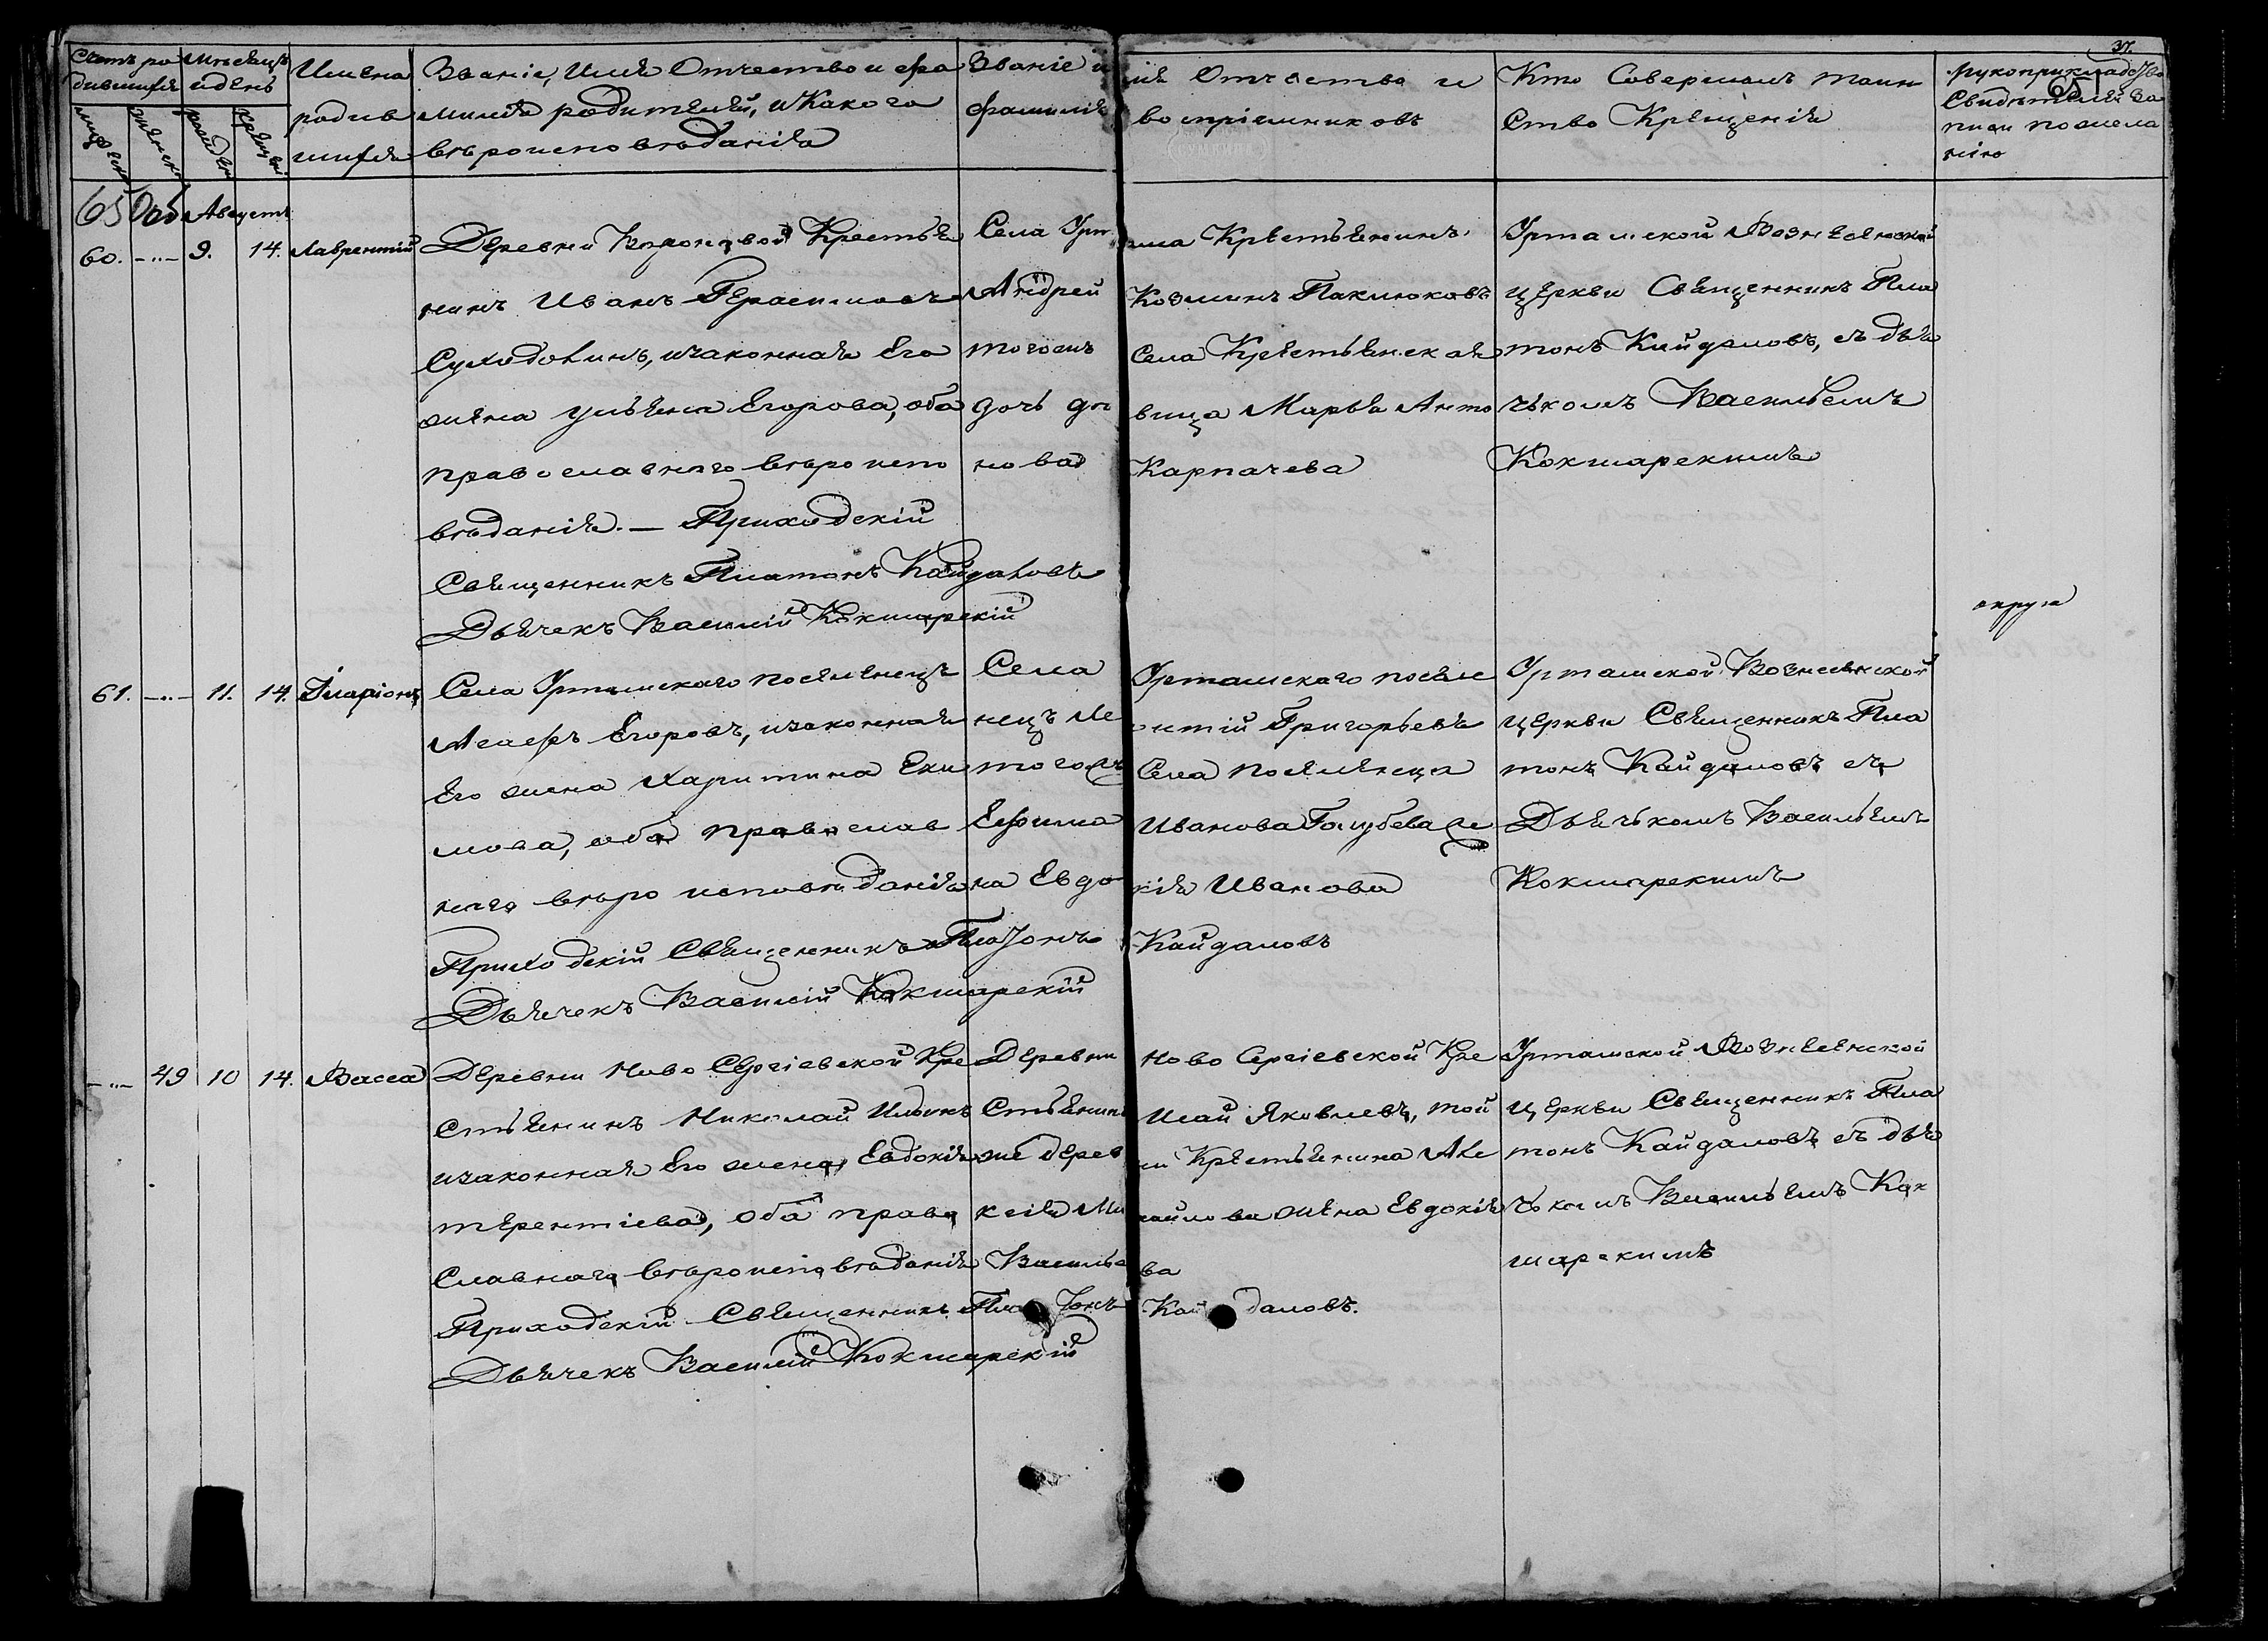 37.
65
Счетъ ро
дившихся
Мѣсяцъ
и день
Имена
родив
шихся
Званіе, Имя Отчество и фа
милія родителей, и Какого
вѣроисповѣданія
Званіе и мя Отчество и
фамилія воспріемниковъ
Кто Совершалъ таин
Ство Крещенія
рукоприкладство
Свидѣтелей за
писи по жела
нію
мужеск женск рожден крещен
65 Об Августъ
60. —"— 9. 14. Лаврентій
Деревни Вороновой Крестья
нинъ Иванъ Герасимовъ
Суходолинъ, изаконная Его
жена ульяна Егорова, оба
православнаго вѣроиспо
вѣданія. — Приходскій
Священникъ Платонъ Кайдаловъ
Дьячекъ Василій Кокшарскій
Села Урт ама Крестьянинъ
Андрей Козминъ Паклюковъ
тогожъ Села Крестьянская
дочь дѣ вица Марья Анто
нова Карпачева
Урташской Вознесенской
церкви Священникъ Пла
тонъ Кайдаловъ, съ дья
чькомъ Васильемъ
Кокшарскимъ
округа
61. —"— 11. 14. Іларіонъ
Села Урташскаго поселенецъ
Егоровъ, изаконная
Его жена Харитина Еки
мова, оба православ
наго вѣро исповѣданія
Приходскій Священникъ Платонъ Кайдаловъ
Дьячекъ Василій Кокшарскій
Села Урташскаго поселе
нецъ Ле онтій Григорьевъ
тогожъ Села поселенца
Ефима Иванова Голубева же
на Евдо кія Иванова
Урташской Вознесенской
церкви Священникъ Пла
тонъ Кайдаловъ съ
Дьячькомъ Васильемъ
Кокшарскимъ
—"— 49 10 14. Васса
Деревни Ново Сергіевской Кре
стьянинъ Николай Ильинъ
изаконная Его жена Евдокія
терентіева, оба право
Славнаго вѣроисповѣданія
Приходскій Священникъ Платонъ Кайдаловъ.
Дьячекъ Василій Кокшарскій
Деревни Ново Сергіевской Кре
стьянинъ Исай Яковлевъ, той
же дерев ни Крестьянина Але
ксія Ми хайлова жена Евдокія
Василье ва
Урташской Вознесенской
церкви Священникъ Пла
тонъ Кайдаловъ съ дья
чькомъ Васильемъ Кок
шарскимъ